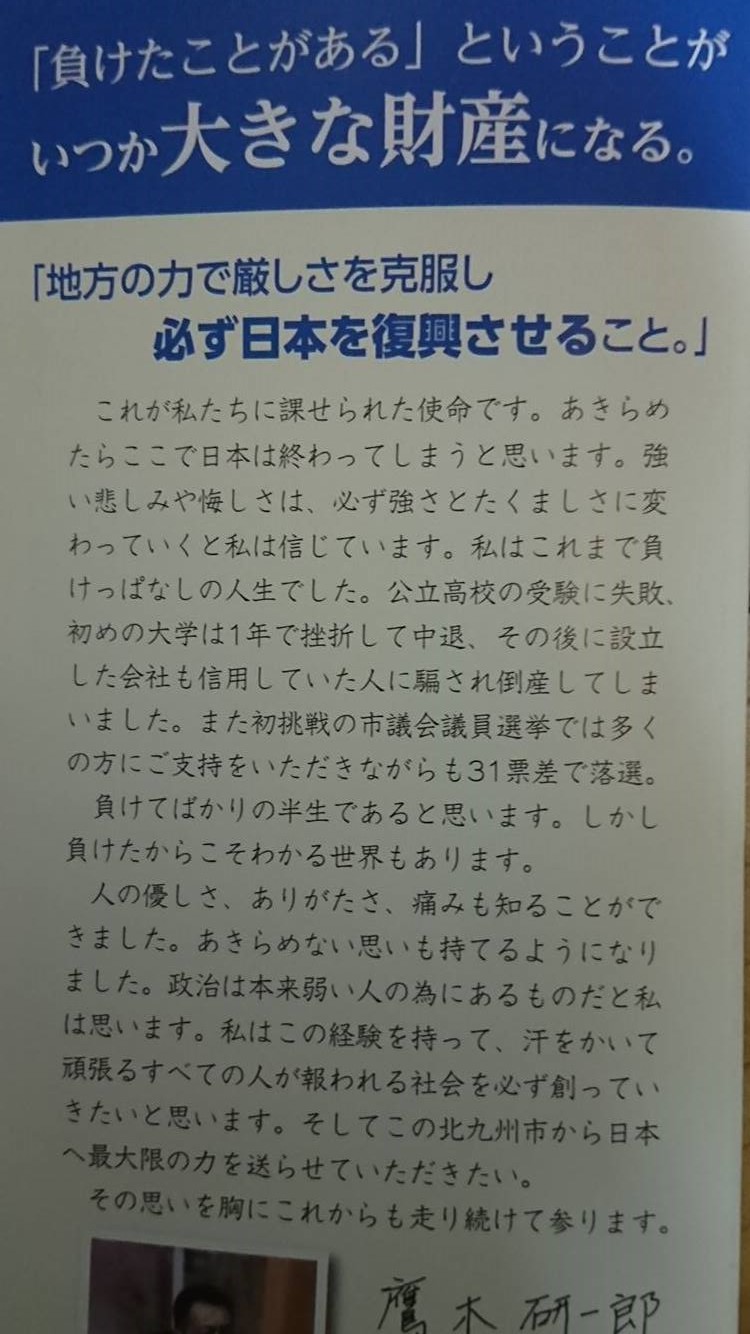 「負けたことがある」ということが
いつか大きな財産になる。
「地方の力で厳しさを克服し
必ず日本を復興させること。」
これが私たちに課せられた使命です。あきらめ
たらここで日本は終わってしまうと思います。強
い悲しみや悔しさは、必ず強さとたくましさに変
わっていくと私は信じています。私はこれまで負
けっぱなしの人生でした。公立高校の受験に失敗、
初めの大学は1年で挫折して中退、その後に設立
した会社も信用していた人に騙され倒産してしま
いました。また初挑戦の市議会議員選挙では多く
の方にご支持をいただきながらも31票差で落選。
負けてばかりの半生であると思います。しかし
負けたからこそわかる世界もあります。
人の優しさ、ありがたさ、痛みも知ることがで
きました。あきらめない思いも持てるようになり
ました。政治は本来弱い人の為にあるものだと私
は思います。私はこの経験を持って、汗をかいて
頑張るすべての人が報われる社会を必ず創ってい
きたいと思います。そしてこの北九州市から日本
へ最大限の力を送らせていただきたい。
その思いを胸にこれからも走り続けて参ります。
鷹木研一郎